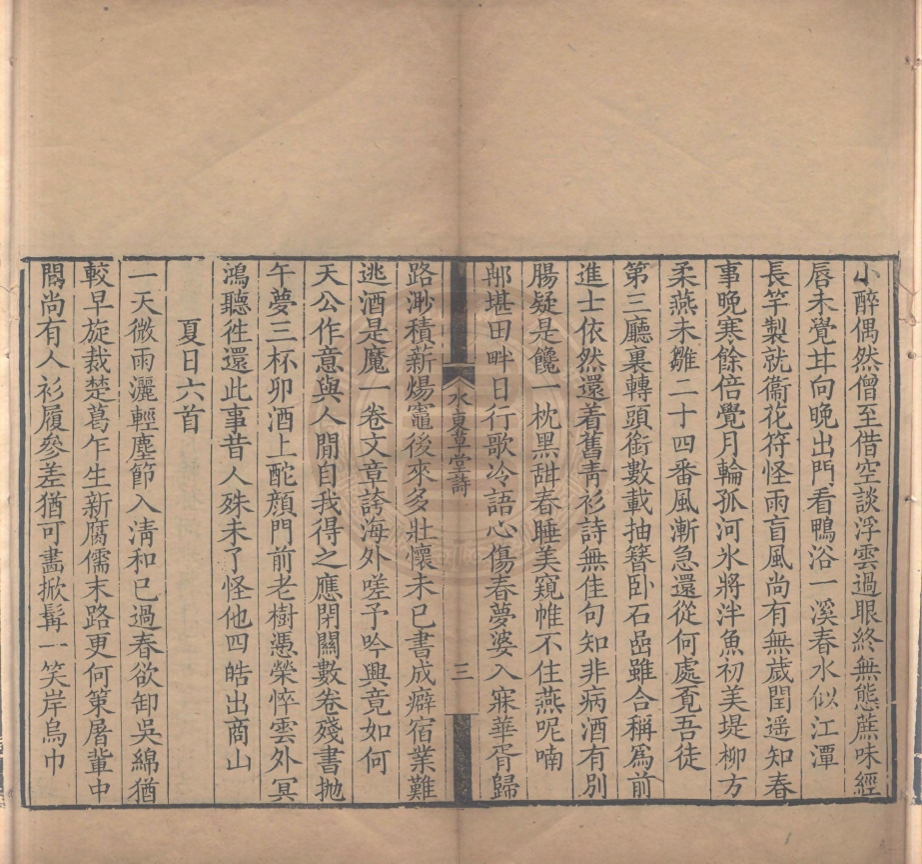 小醉偶然僧至借空談浮雲過眼終無態蔗味經
唇未覺甘向晚出門看鴨浴一溪春水似江潭
長竿製就衞花符怪雨盲風尚有無歲閏遥知春
事晚寒餘倍覺月輪孤河氷將泮魚初美堤柳方
柔燕未雛二十四番風漸急還從何處覔吾徒
第三廳裏轉頭銜數載抽簪卧石嵒雖合稱爲前
進士依然還着舊靑衫詩無佳句知非病酒有別
腸疑是饞一枕黑甜春睡美窺帷不住燕呢喃
郍堪田畔日行歌冷語心傷春夢婆入寐華胥歸
水東草堂詩
三
路渺積新煬竈後來多壯懷未已書成癖宿業難
逃酒是魔一卷文章誇海外嗟予吟興竟如何
天公作意與人閒自我得之應閉關數卷殘書抛
午夢三杯卯酒上酡顔門前老樹憑榮悴雲外冥
鴻聽徃還此事昔人殊未了怪他四皓出商山
夏日六首
一天微雨灑輕塵節入淸和已過春欲卸吳綿猶
較早旋裁楚葛乍生新腐儒末路更何策屠軰中
間尚有人衫履參差猶可畵掀髯一笑岸烏巾